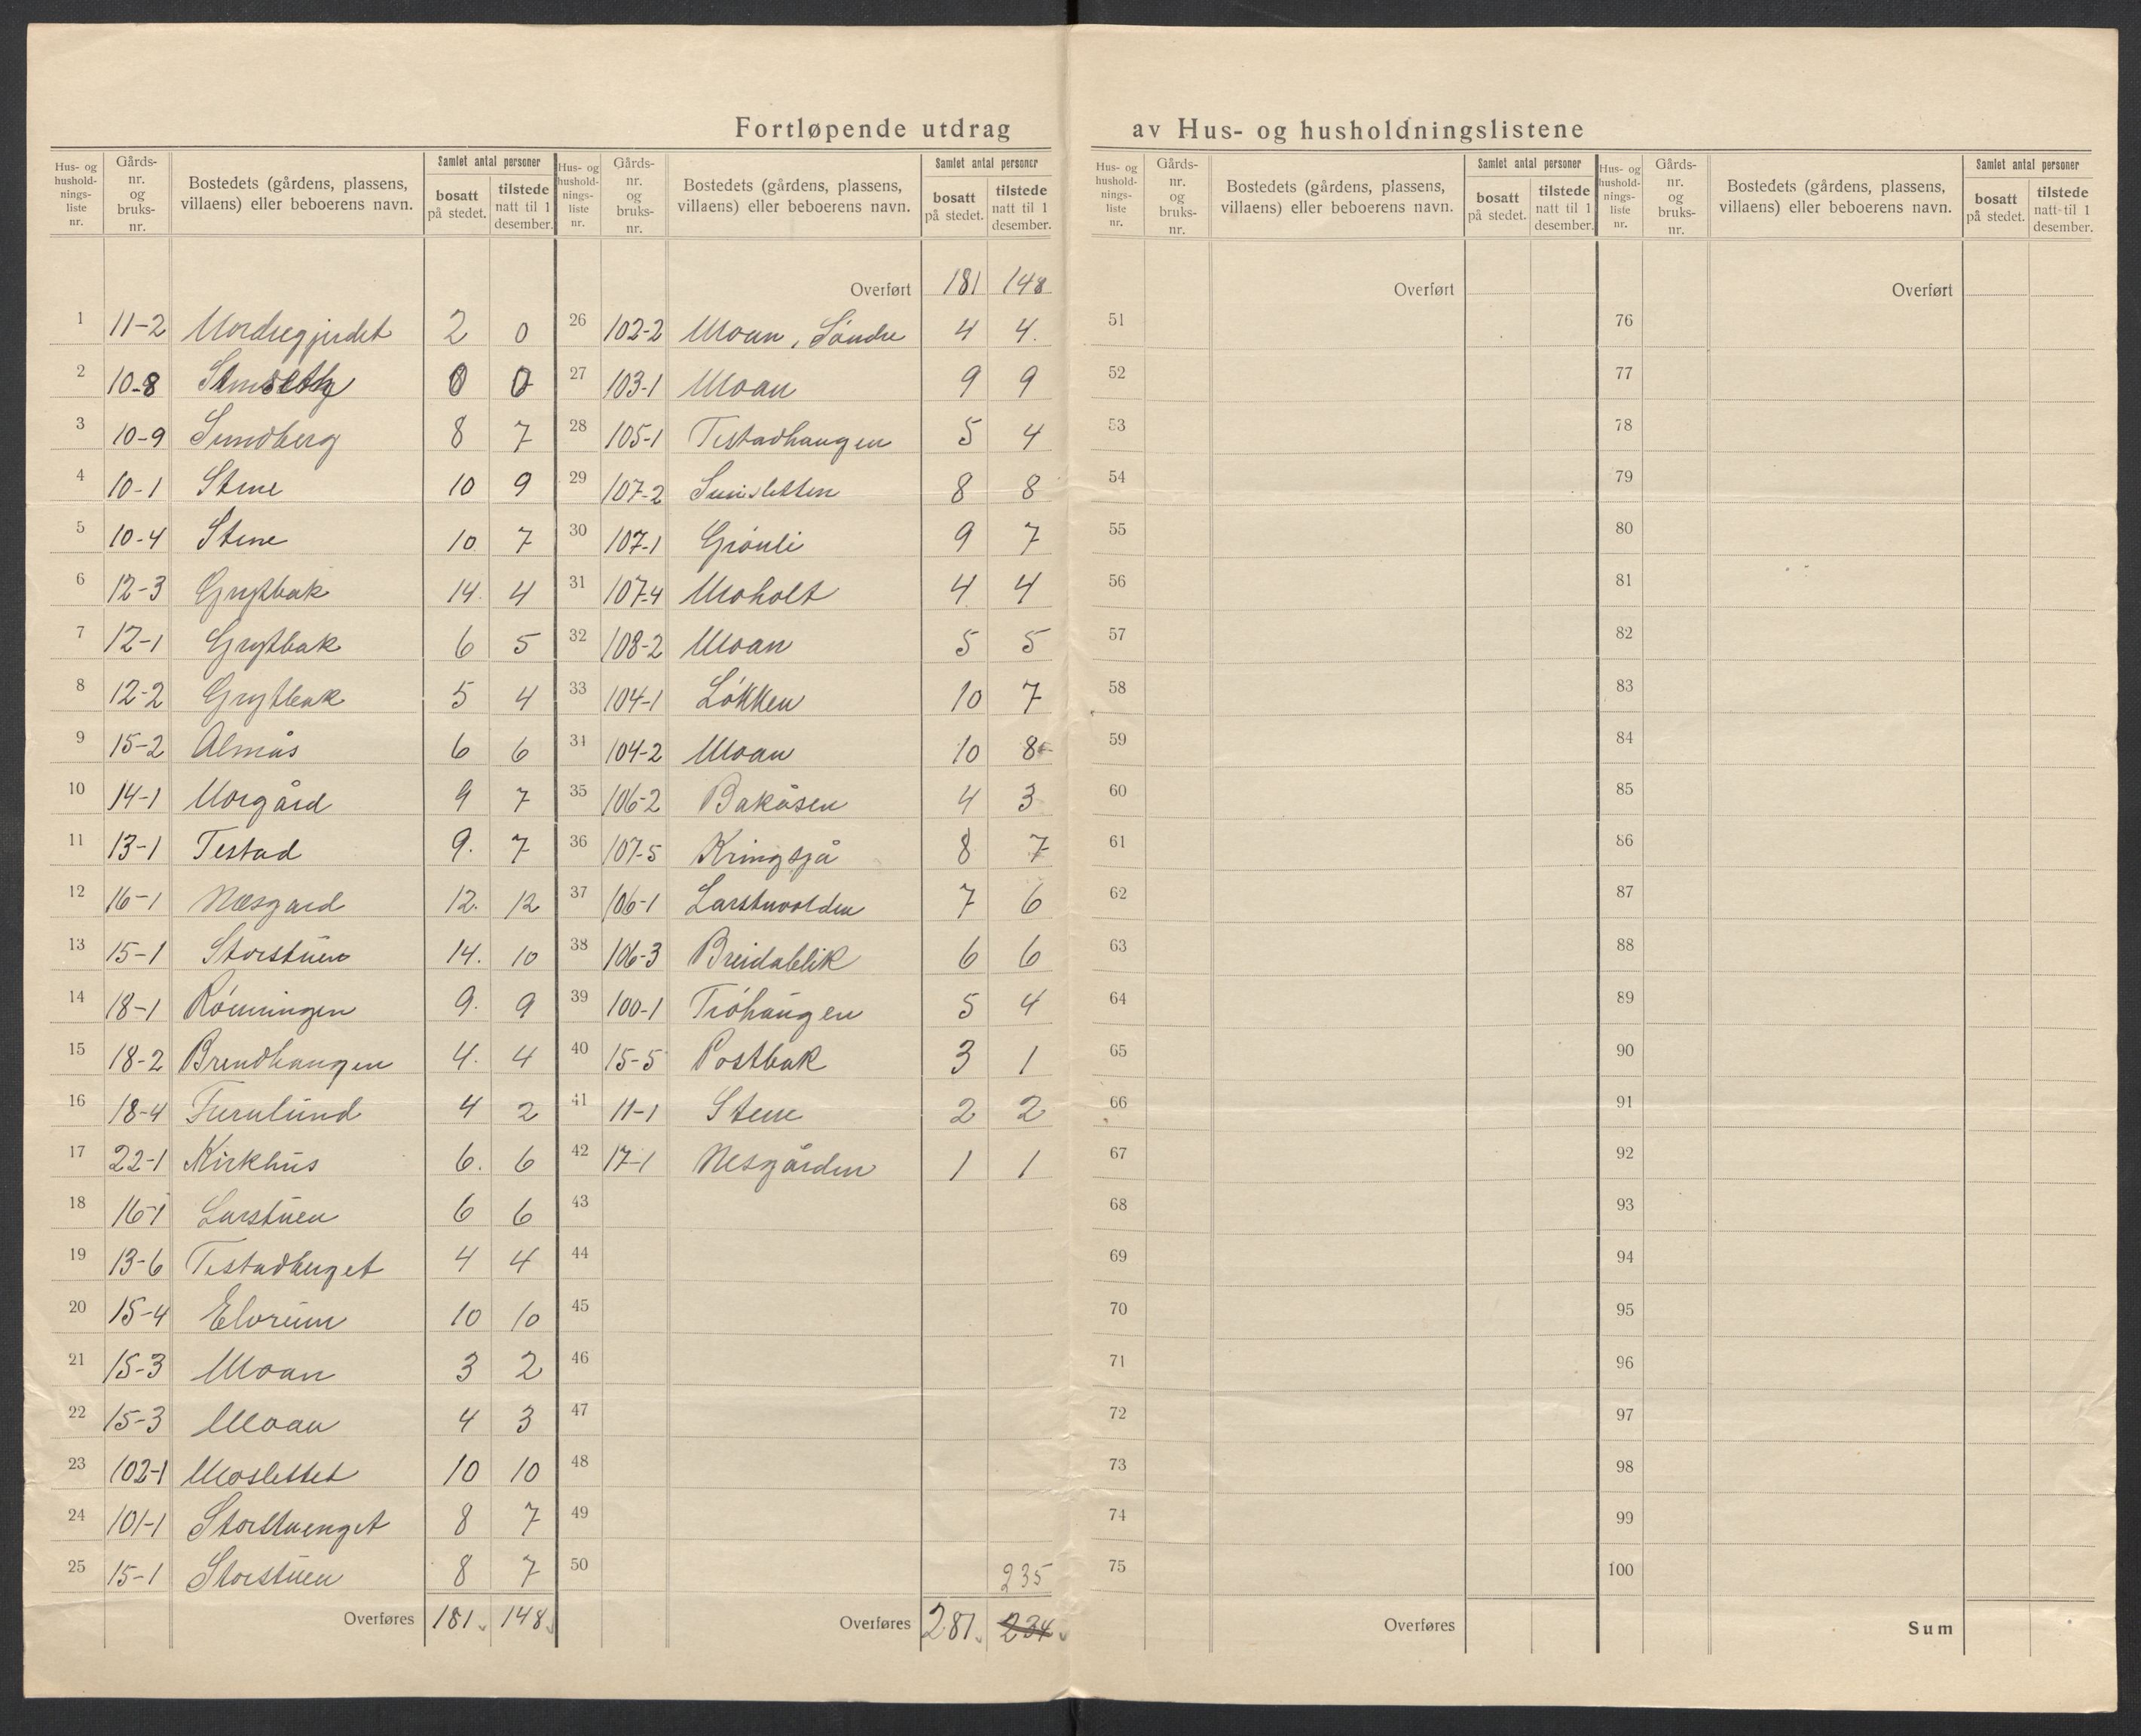 Fortløpende utdrag av Hus- og husholdningslistene
Hus- og hushold-nings-liste nr. | Gårds-nr. og bruks-nr. | Bostedets (gårdens, plassens, villaens) eller beboerens navn. | Samlet antal personer | bosatt på stedet. | tilstede natt til 1 desember.
1 11-2 Nordregjerdet 2 0
2 10-8 0 0
3 10-9 Sundberg 8 7
4 10-1 Stene 10 9
5 10-4 Stene 10 7
6 12-3 Grytbak 14. 4
7 12-1 Grytbak 6 5
8 12-2 Grytbak 5 4
9 15-2 Almås 6 6
10 14-1 Norgård 9 7
11 13-1 Testad 9. 7
12 16-1 Næsgard 12. 12
13 15-1 Storstuen 14. 10
14 18-1 Rönningen 9. 9
15 18-2 Brendhaugen 4. 4
16 18-4 Furulund 4 2
17 22-1 Kirkhus 6. 6
18 16-1 Larstuen 6 6
19 13-6 Testadberget 4 4
20 15-4 Elvrum 10 10
21 15-3 Moan 3 2
22 15-3 Moan 4 3
23 102-1 Moslettet 10 10
24 101-1 Storstuenget 8 7
25 15-1 Storstuen 8 7
Overføres 181 148
Hus- og hushold-nings-liste nr. | Gårds-nr. og bruks-nr. | Bostedets (gårdens, plassens, villaens) eller beboerens navn. | Samlet antal personer | bosatt på stedet. | tilstede natt til 1 desember.
Overført 181 148
26 102-2 Moan, Söndre 4 4.
27 103-1 Moan 9 9
28 105-1 Testadhaugen 5 4
29 107-2 8 8
30 107-1 Grönli 9 7
31 107-4 Moholt 4 4
32 108-2 Moan 5 5
33 104-1 Lökken 10 7
34 104-2 Moan 10 8
35 106-2 Bakåsen 4 3
36 107-5 Kringsjå 8 7
37 106-1 Larstuvolden 7 6
38 106-3 Breidablik 6 6
39 100-1 Tröhaugen 5 4
40 15-5 Postbak 3 1
41 11-1 Stene 2 2
42 17-1 Nesgården 1 1
43
44
45
46
47
48
49
50 235
Overføres 281 234
Hus- og hushold-nings-liste nr. | Gårds-nr. og bruks-nr. | Bostedets (gårdens, plassens, villaens) eller beboerens navn. | Samlet antal personer | bosatt på stedet. | tilstede natt til 1 desember.
Overført
51
52
53
54
55
56
57
58
59
60
61
62
63
64
65
66
67
68
69
70
71
72
73
74
75
Overføres
Hus- og hushold-nings-liste nr. | Gårds-nr. og bruks-nr. | Bostedets (gårdens, plassens, villaens) eller beboerens navn. | Samlet antal personer | bosatt på stedet. | tilstede natt til 1 desember.
Overført
76
77
78
79
80
81
82
83
84
85
86
87
88
89
90
91
92
93
94
95
96
97
98
99
100
Sum